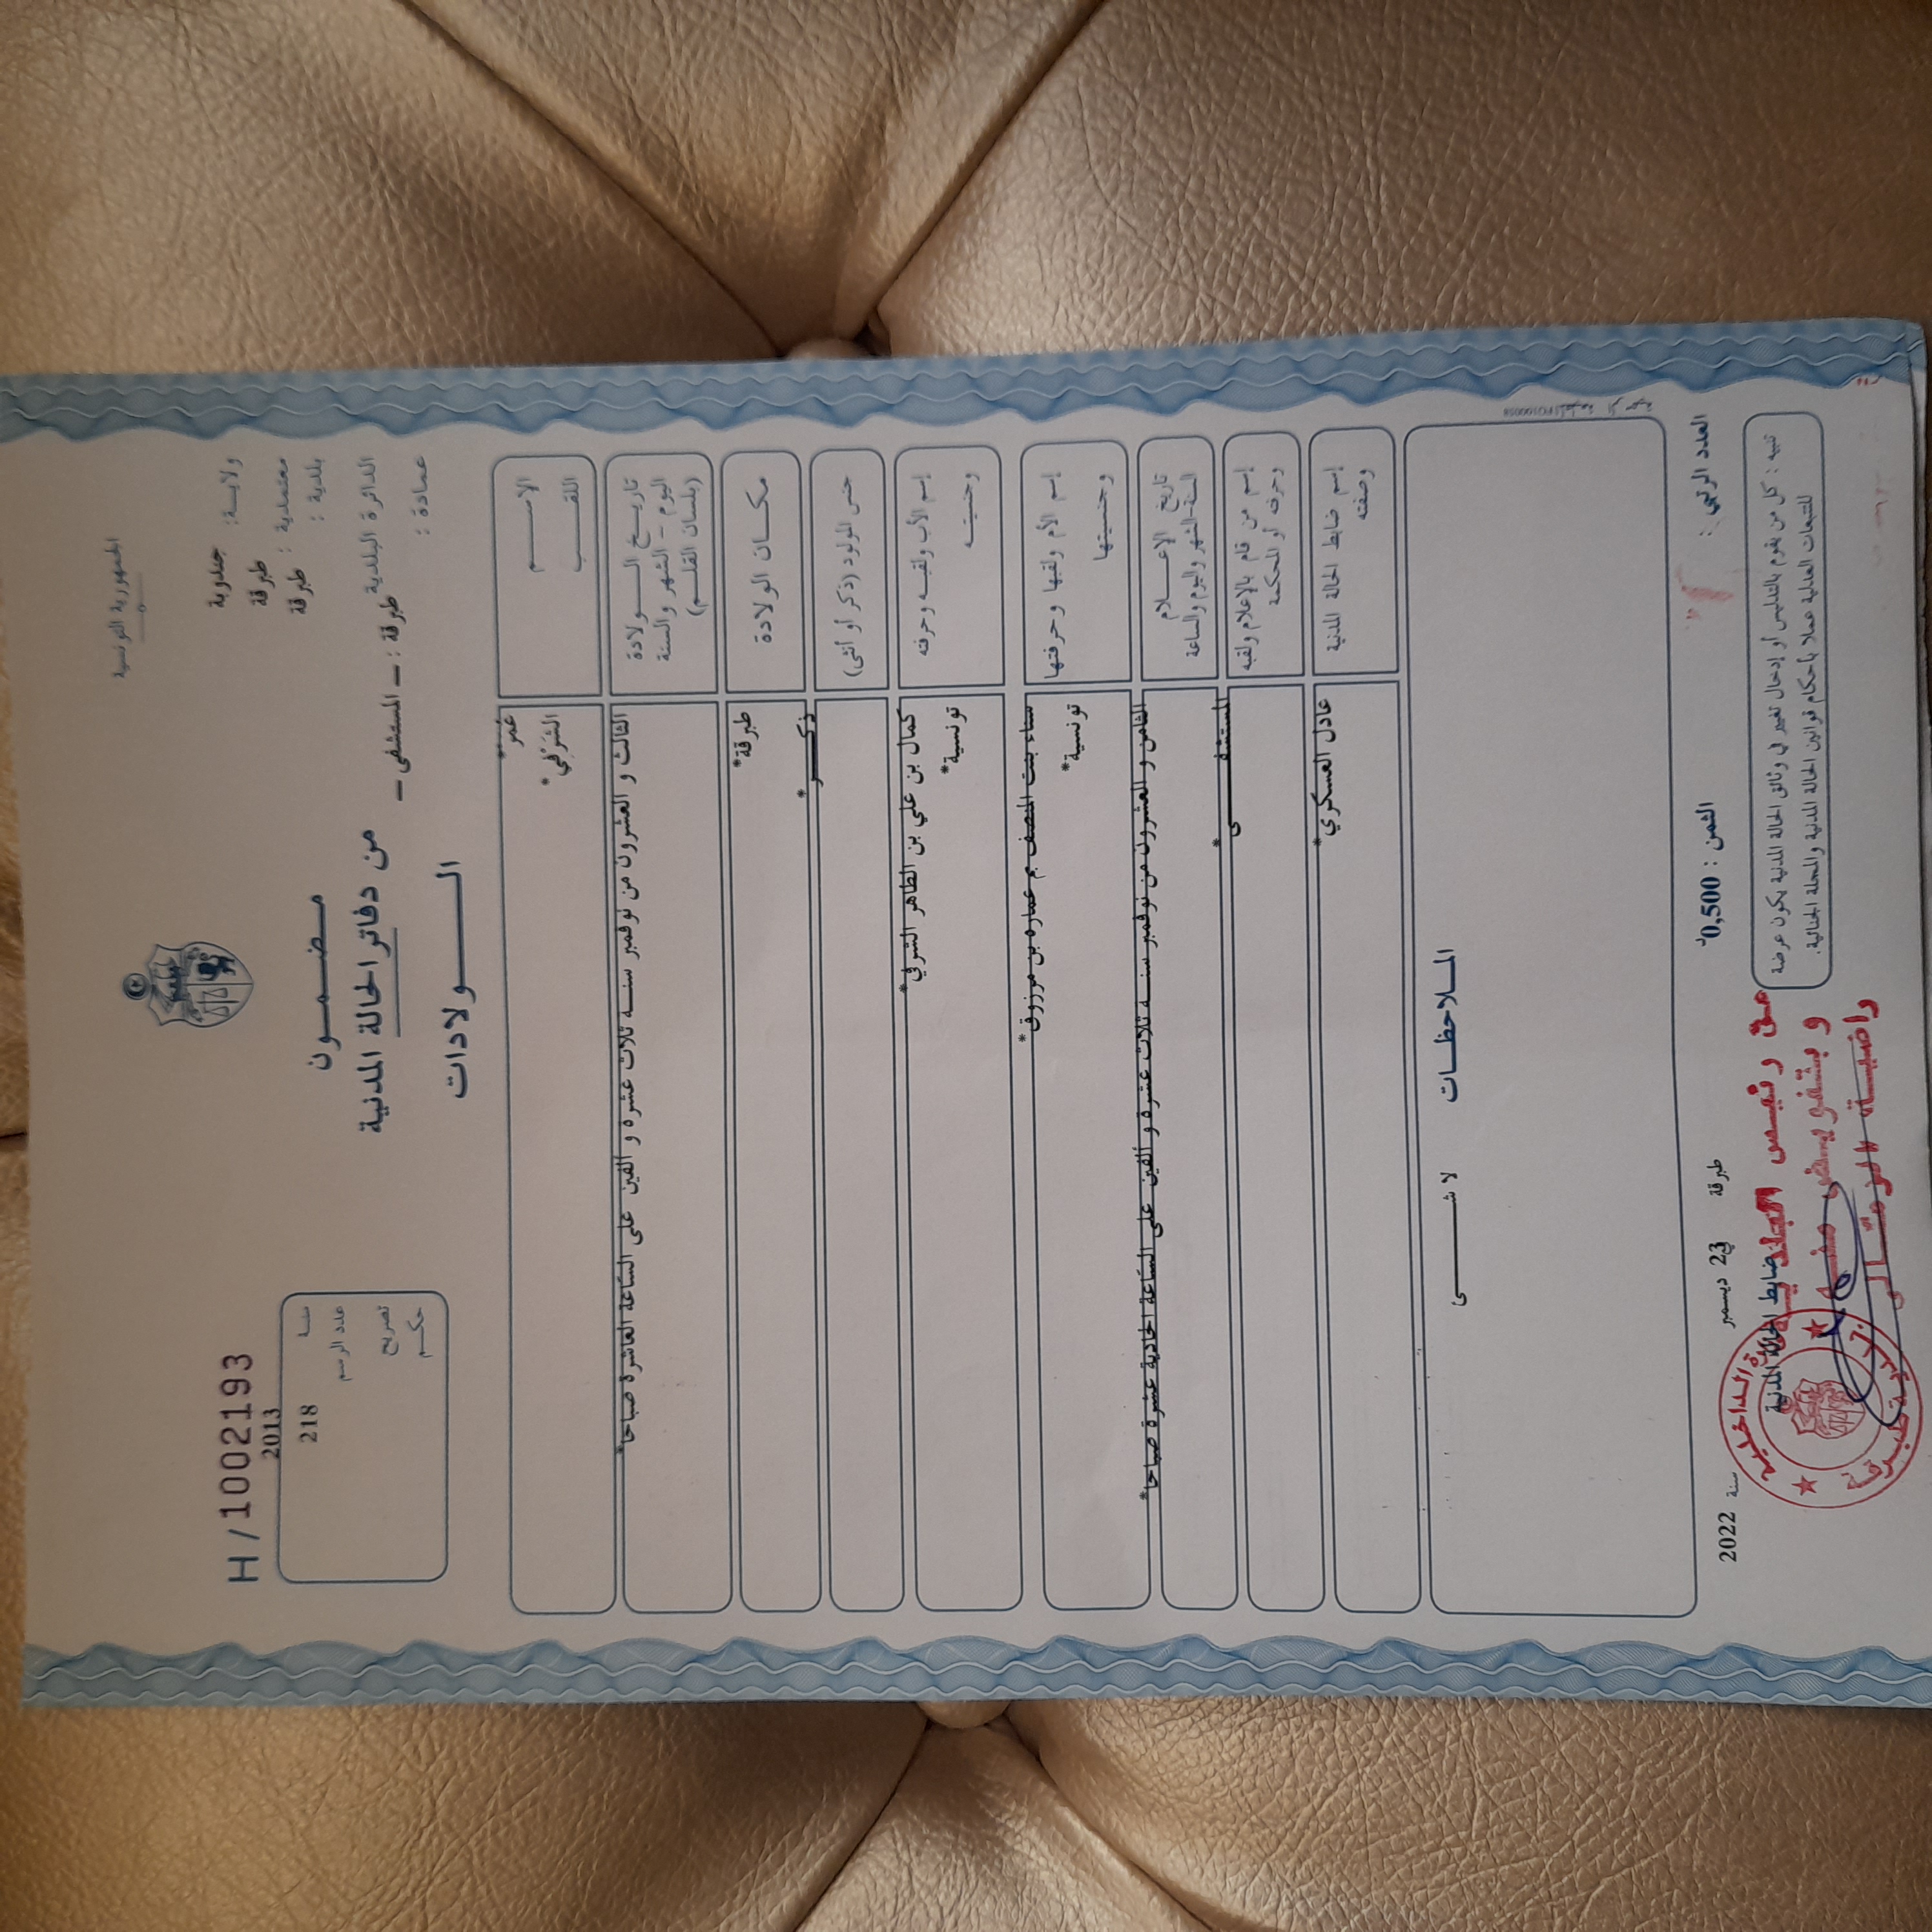 الجمهورية التونسية
ولايـة: جندوبة
معتمدية : طبرقة
بلدية : طبرقة
الدائرة البلدية طبرقة : – المستشفى –
عمادة :
H / 1002193
2013
سنة
218
عدد الرسم
تصريح
حكـم
مـضـمـون
من دفاتر الحالة المدنية
الـــولادات
الاســـم
عُمَر*
اللقـــب
الشرفي*
تاريـخ الــولادة
اليوم – الشهر والسنة
(بلسان القلـم)
الثالث و العشرون من نوفمبر سنـــة ثلاث عشرة و ألفين على الساعة العاشرة صباحا*
مكــان الولادة
طبرقة*
جنس المولود (ذكر أو أنثى)
ذكـــر*
إسم الأب ولقبـه وحرفته
كمال بن علي بن الطاهر الشرفي*
وجنسيتـه
تونسية*
إسم الأم ولقبها وحرفتها
سناء بنت المنصف بم عماره بن مرزوق*
وجنسيتها
تونسية*
تاريخ الإعـــلام
السنة-الشهر واليوم والساعة
الثامن و العشرون من نوفمبر سنـــة ثلاث عشرة و ألفين على الساعة الحادية عشرة صباحا*
إسم من قام بالإعلام ولقبه
وحرفته أو المحكمة
المستشفـــى*
إسم ضابط الحالة المدنية
وصفته
عادل العسكري*
المـلاحظـات
لا شـــــئ
العدد الرتبي :
الثمن : 0,500د
طبرقة في 23 ديسمبر سنة 2022
ضابط الحالة المدنية
تنبيه : كل من يقوم بالتدليس أو إدخال تغيير في وثائق الحالة المدنية يكون عرضة
للتتبعات العدلية عملا بأحكام قوانين الحالة المدنية والمجلة الجنائية.
عن رئيس البلدية
و بتفويض منه
راضية
وزارة الداخلية
بلدية طبرقة